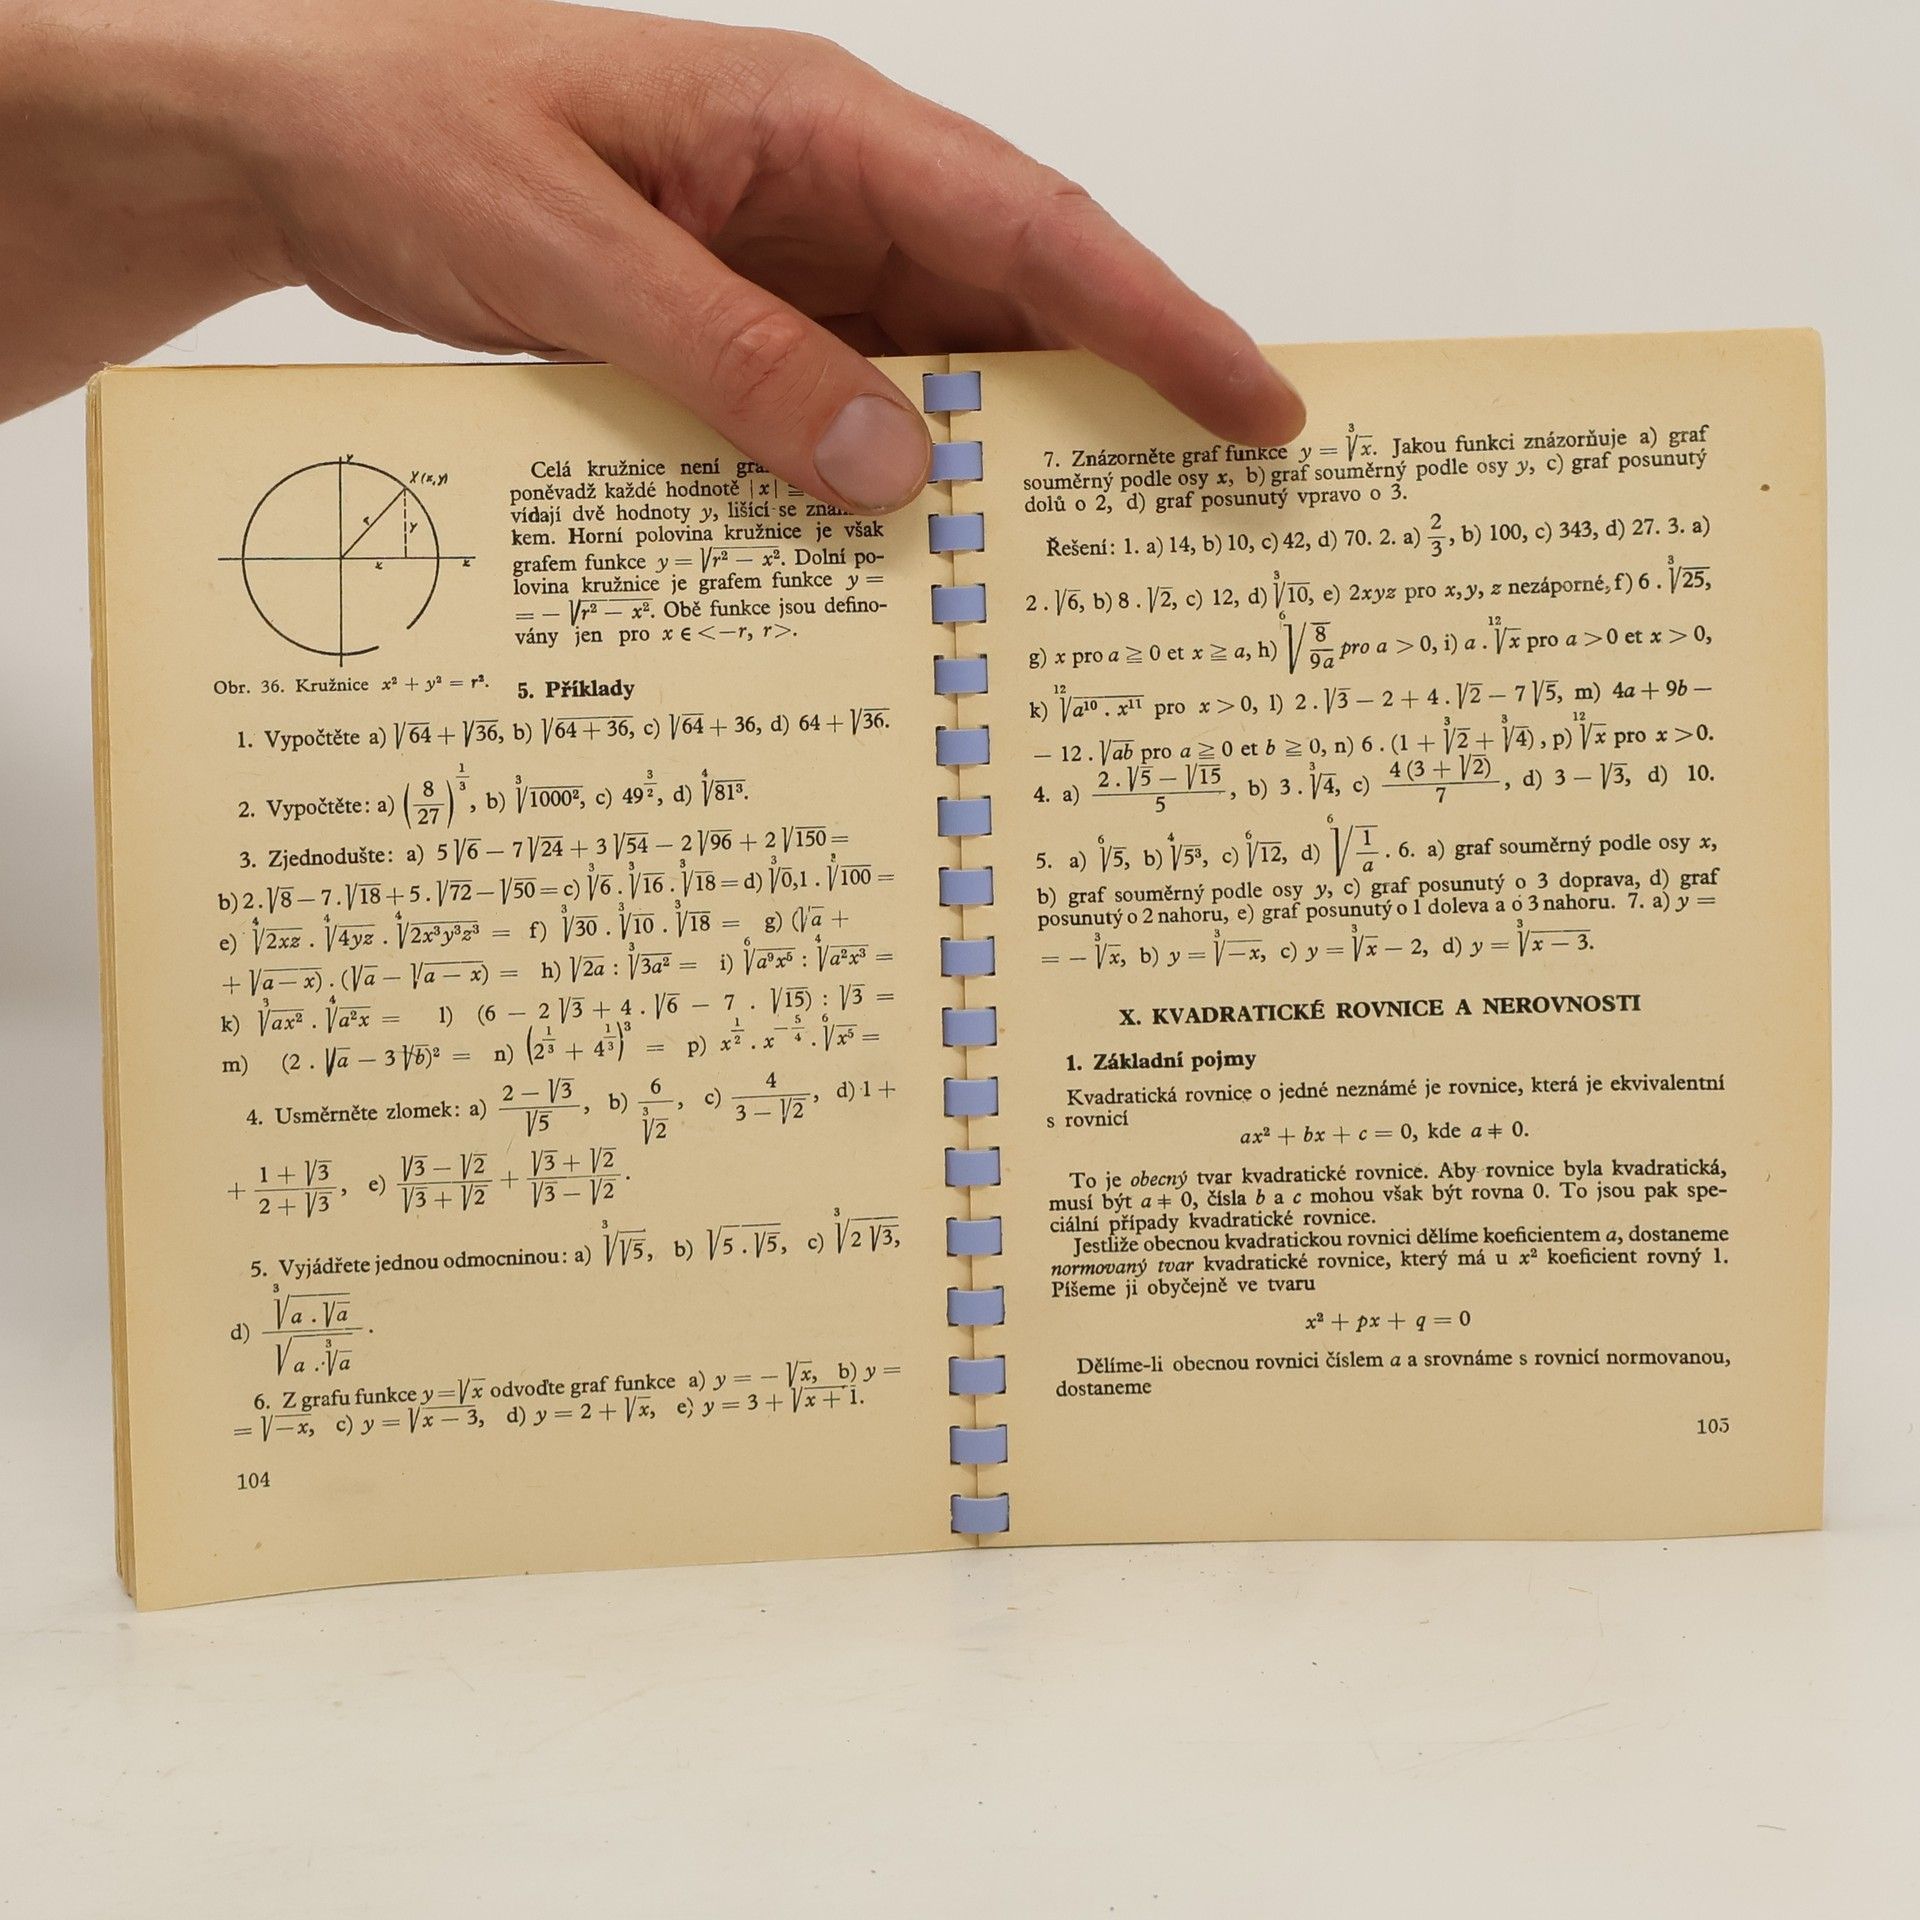 y
X (x, y)
r
y
x
x
Obr. 36. Kružnice x² + y² = r².
Celá kružnice není
poněvadž každé hodnotě |x| ≦
vídají dvě hodnoty y, lišící se
kem. Horní polovina kružnice je však
grafem funkce y = √(r² − x²). Dolní po-
lovina kružnice je grafem funkce y =
= − √(r² − x²). Obě funkce jsou defino-
vány jen pro x ∈ <−r, r>.
5. Příklady
1. Vypočtěte a) √64 + √36, b) √(64 + 36), c) √64 + 36, d) 64 + √36.
2. Vypočtěte: a) (8/27)^(1/3), b) ∛(1000²), c) 49^(3/2), d) ∜(81³).
3. Zjednodušte: a) 5√6 − 7√24 + 3√54 − 2√96 + 2√150 =
b) 2.√8 − 7.√18 + 5.√72 − √50 = c) ∛6 . ∛16 . ∛18 = d) ∛0,1 . ∛100 =
e) ∜(2xz) . ∜(4yz) . ∜(2x³y³z³) = f) ∛30 . ∛10 . ∛18 = g) (√a +
+ √(a − x)) . (√a − √(a − x)) = h) √(2a) : ∛(3a²) = i) ⁶√(a⁹x⁵) : ∜(a²x³) =
k) ∛(ax²) . ∜(a²x) = l) (6 − 2√3 + 4 . √6 − 7 . √15) : √3 =
m) (2 . √a − 3√b)² = n) (2^(1/3) + 4^(1/3))³ = p) x^(1/2) . x^(−5/4) . ⁶√(x⁵) =
4. Usměrněte zlomek: a) (2 − √3)/√5, b) 6/∛2, c) 4/(3 − √2), d) 1 +
+ (1 + √3)/(2 + √3), e) (√3 − √2)/(√3 + √2) + (√3 + √2)/(√3 − √2).
5. Vyjádřete jednou odmocninou: a) ∛(√5), b) √(5 . √5), c) ∛(2√3),
d) ∛(a . √a)/√(a . ∛a).
6. Z grafu funkce y = √x odvoďte graf funkce a) y = − √x, b) y =
= √(−x), c) y = √(x − 3), d) y = 2 + √x, e) y = 3 + √(x + 1).
104
7. Znázorněte graf funkce y = ∛x. Jakou funkci znázorňuje a) graf
souměrný podle osy x, b) graf souměrný podle osy y, c) graf posunutý
dolů o 2, d) graf posunutý vpravo o 3.
Řešení: 1. a) 14, b) 10, c) 42, d) 70. 2. a) 2/3, b) 100, c) 343, d) 27. 3. a)
2 . √6, b) 8 . √2, c) 12, d) ∛10, e) 2xyz pro x, y, z nezáporné, f) 6 . ∛25,
g) x pro a ≧ 0 et x ≧ a, h) ⁶√(8/9a) pro a > 0, i) a . ¹²√x pro a > 0 et x > 0,
k) ¹²√(a¹⁰ . x¹¹) pro x > 0, l) 2 . √3 − 2 + 4 . √2 − 7√5, m) 4a + 9b −
− 12 . √(ab) pro a ≧ 0 et b ≧ 0, n) 6 . (1 + ∛2 + ∛4), p) ¹²√x pro x > 0.
4. a) (2 . √5 − √15)/5, b) 3 . ∛4, c) 4 (3 + √2)/7, d) 3 − √3, d) 10.
5. a) ⁶√5, b) ∜(5³), c) ⁶√12, d) ⁶√(1/a). 6. a) graf souměrný podle osy x,
b) graf souměrný podle osy y, c) graf posunutý o 3 doprava, d) graf
posunutý o 2 nahoru, e) graf posunutý o 1 doleva a o 3 nahoru. 7. a) y =
= − ∛x, b) y = ∛(−x), c) y = ∛x − 2, d) y = ∛(x − 3).
X. KVADRATICKÉ ROVNICE A NEROVNOSTI
1. Základní pojmy
Kvadratická rovnice o jedné neznámé je rovnice, která je ekvivalentní
s rovnicí
ax² + bx + c = 0, kde a ≠ 0.
To je obecný tvar kvadratické rovnice. Aby rovnice byla kvadratická,
musí být a ≠ 0, čísla b a c mohou však být rovna 0. To jsou pak spe-
ciální případy kvadratické rovnice.
Jestliže obecnou kvadratickou rovnici dělíme koeficientem a, dostaneme
normovaný tvar kvadratické rovnice, který má u x² koeficient rovný 1.
Píšeme ji obyčejně ve tvaru
x² + px + q = 0
Dělíme-li obecnou rovnici číslem a a srovnáme s rovnicí normovanou,
dostaneme
105